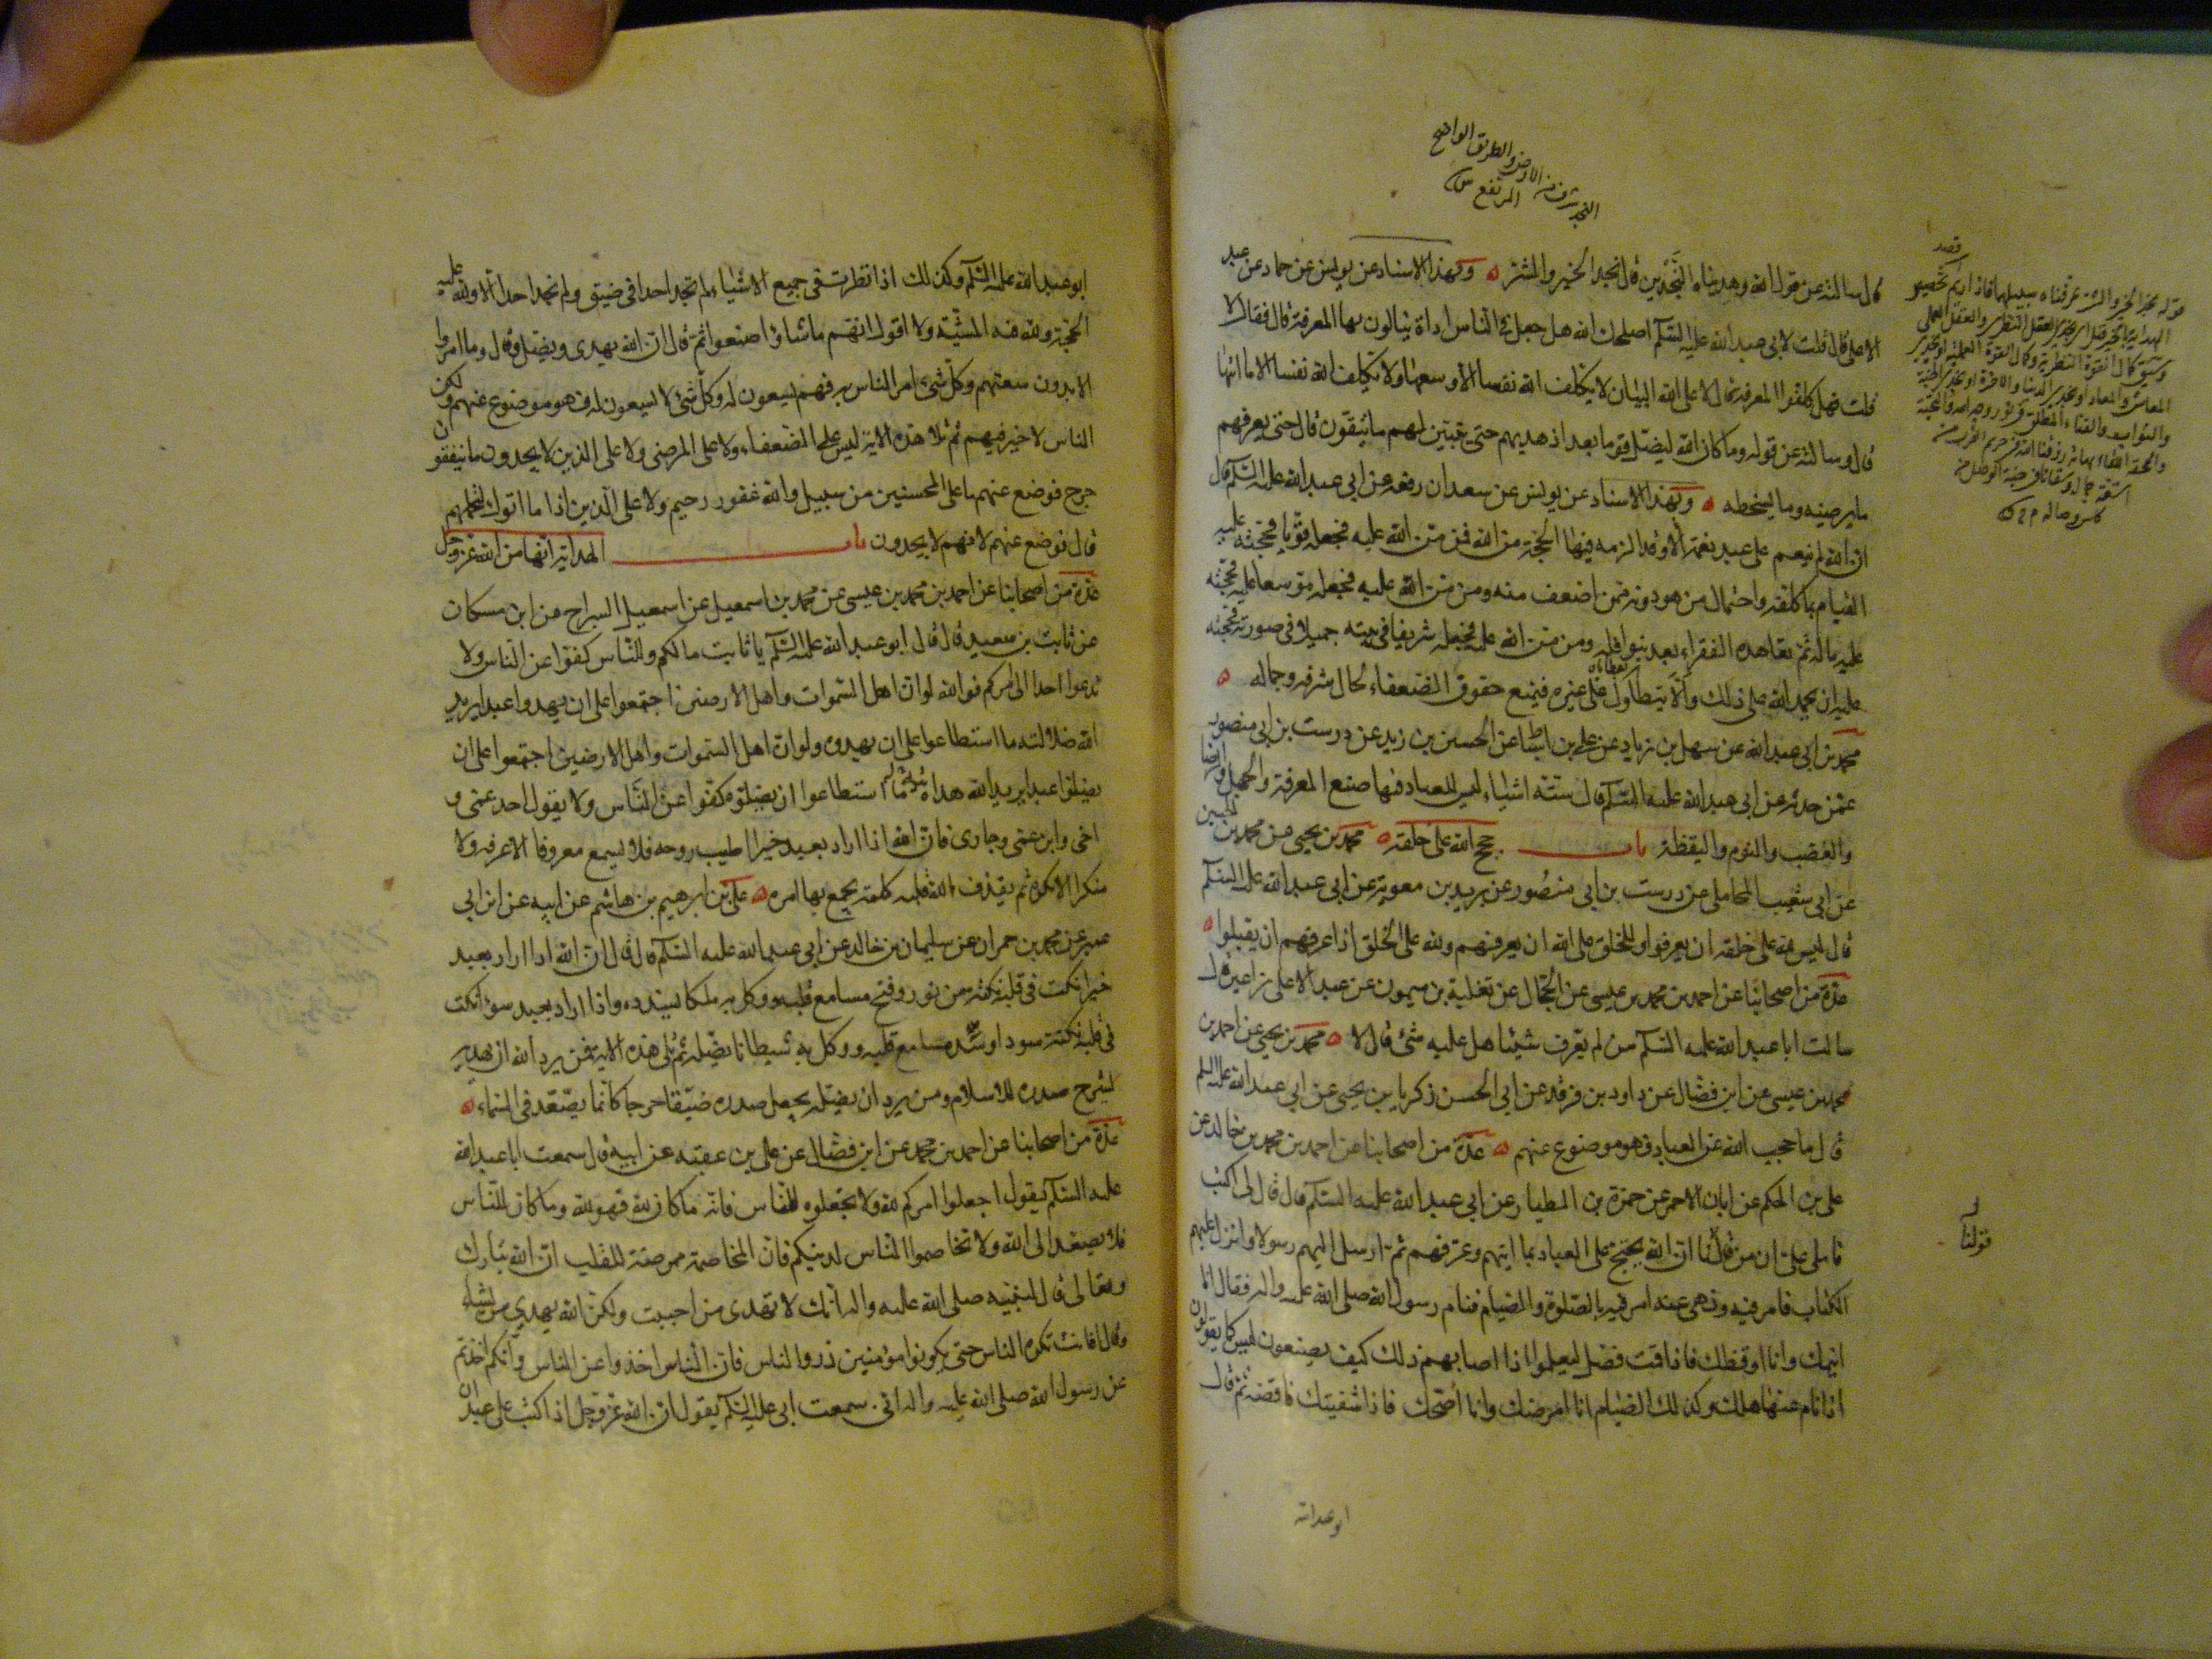 النجد ما اشرف من الارض والطريق الواضح
المرتفع ص
قال سالته عن قول الله وهديناه النجدين قال نجدا الخير والشر وبهذا الاسناد عن يونس عن حماد عن عبد
الاعلى قال قلت لابي عبد الله عليه السلم اصلحك الله هل جعل في الناس اداة ينالون بها المعرفة قال فقال لا
قلت فهل كلفوا المعرفة قال لا على الله البيان لا يكلف الله نفسا الا وسعها ولا يكلف الله نفسا الا ما اتيها
قال وسالته عن قوله وما كان الله ليضل قوما بعد اذ هديهم حتى يتبين لهم ما يتقون قال حتى يعرفهم
ما يرضيه وما يسخطه وبهذا الاسناد عن يونس عن سعدان رفعه عن ابي عبد الله عليه السلم قال
ان الله لم ينعم على عبد نعمة الا وقد الزمه فيها الحجة من الله فمن من الله عليه فجعله قويا فحجته عليه
القيام بما كلفه واحتمال من هو دونه ممن اضعف منه ومن من الله عليه فجعله موسعا عليه فحجته
عليه ماله ثم تعاهده الفقراء بعد بنوافله ومن من الله عليه فجعله شريفا في بيته جميلا في صورته فحجته
عليه ان يحمد الله على ذلك والا يتطاول على غيره فيمنع حقوق الضعفاء لحال شرفه وجماله
محمد بن ابي عبد الله عن سهل بن زياد عن علي بن اسباط عن الحسين بن زيد عن درست بن ابي منصور
عمن حدثه عن ابي عبد الله عليه السلم قال ستة اشياء ليس للعباد فيها صنع المعرفة والجهل والرضا
والغضب والنوم واليقظة باب حجج الله على خلقه محمد بن يحيى عن محمد بن الحسين
عن ابي شعيب المحاملي عن درست بن ابي منصور عن بريد بن معوية عن ابي عبد الله عليه السلم
قال ليس لله على خلقه ان يعرفوا وللخلق على الله ان يعرفهم ولله على الخلق اذا عرفهم ان يقبلوا
عدة من اصحابنا عن احمد بن محمد بن عيسى عن الحجال عن ثعلبة بن ميمون عن عبد الاعلى بن اعين قال
سالت ابا عبد الله عليه السلم من لم يعرف شيئا هل عليه شئ قال لا محمد بن يحيى عن احمد بن
محمد بن عيسى عن ابن فضال عن داود بن فرقد عن ابي الحسن زكريا بن يحيى عن ابي عبد الله عليه السلم
قال ما حجب الله عن العباد فهو موضوع عنهم عدة من اصحابنا عن احمد بن محمد بن خالد عن
علي بن الحكم عن ابان الاحمر عن حمزة بن الطيار عن ابي عبد الله عليه السلم قال قال لي اكتب
فاملى علي ان من قولنا ان الله يحتج على العباد بما اتيهم وعرفهم ثم ارسل اليهم رسولا وانزل عليهم
الكتاب فامر فيه ونهى عنه امر فيه بالصلوة والصيام فنام رسول الله صلى الله عليه واله فقال انا
انيمك وانا اوقظك فاذا قمت فصل ليعلموا اذا اصابهم ذلك كيف يصنعون ليس كما يقولون
اذا نام عنها هلك وكذلك الصيام انا امرضك وانا اصحك فاذا شفيتك فاقضه ثم قال
قولنا
ابو عبد الله
ابو عبد الله عليه السلم وكذلك اذا نظرت في جميع الاشياء لم تجد احدا في ضيق ولم تجد احدا الا ولله عليه
الحجة ولله فيه المشية ولا اقول انهم ما شاؤا صنعوا ثم قال ان الله يهدي ويضل وقال وما امروا
الا بدون سعتهم وكل شئ امر الناس به فهم يسعون له وكل شئ لا يسعون له فهو موضوع عنهم ولكن
الناس لا خير فيهم ثم تلا هذه الاية ليس على الضعفاء ولا على المرضى ولا على الذين لا يجدون ما ينفقون
حرج فوضع عنهم ما على المحسنين من سبيل والله غفور رحيم ولا على الذين اذا ما اتوك لتحملهم
قال فوضع عنهم لانهم لا يجدون باب الهداية انها من الله عز وجل
عدة من اصحابنا عن احمد بن محمد بن عيسى عن محمد بن اسمعيل عن اسمعيل السراج عن ابن مسكان
عن ثابت بن سعيد قال قال ابو عبد الله عليه السلم يا ثابت ما لكم وللناس كفوا عن الناس ولا
تدعوا احدا الى امركم فوالله لو ان اهل السموات واهل الارضين اجتمعوا على ان يهدوا عبدا يريد
الله ضلالته ما استطاعوا على ان يهدوه ولو ان اهل السموات واهل الارضين اجتمعوا على ان
يضلوا عبدا يريد الله هداه ما استطاعوا ان يضلوه كفوا عن الناس ولا يقول احد عمي و
اخي وابن عمي وجاري فان الله اذا اراد بعبد خيرا طيب روحه فلا يسمع معروفا الا عرفه ولا
منكرا الا انكره ثم يقذف الله في قلبه كلمة يجمع بها امره علي بن ابرهيم بن هاشم عن ابيه عن ابن ابي
عمير عن محمد بن حمران عن سليمان بن خالد عن ابي عبد الله عليه السلم قال قال ان الله اذا اراد بعبد
خيرا نكت في قلبه نكتة من نور وفتح مسامع قلبه ووكل به ملكا يسدده واذا اراد بعبد سوءا نكت
في قلبه نكتة سوداء وسد مسامع قلبه ووكل به شيطانا يضله ثم تلى هذه الاية فمن يرد الله ان يهديه
يشرح صدره للاسلام ومن يرد ان يضله يجعل صدره ضيقا حرجا كانما يصعد في السماء
عدة من اصحابنا عن احمد بن محمد عن ابن فضال عن علي بن عقبة عن ابيه قال سمعت ابا عبد الله
عليه السلم يقول اجعلوا امركم لله ولا تجعلوه للناس فانه ما كان لله فهو لله وما كان للناس
فلا يصعد الى الله ولا تخاصموا الناس لدينكم فان المخاصمة ممرضة للقلب ان الله تبارك
وتعالى قال لنبيه صلى الله عليه واله انك لا تهدي من احببت ولكن الله يهدي من يشاء
وقال افانت تكره الناس حتى يكونوا مؤمنين ذروا الناس فان الناس اخذوا عن الناس وانكم اخذتم
عن رسول الله صلى الله عليه واله اني سمعت ابي عليه السلم يقول ان الله عز وجل اذا كتب على عبد ان